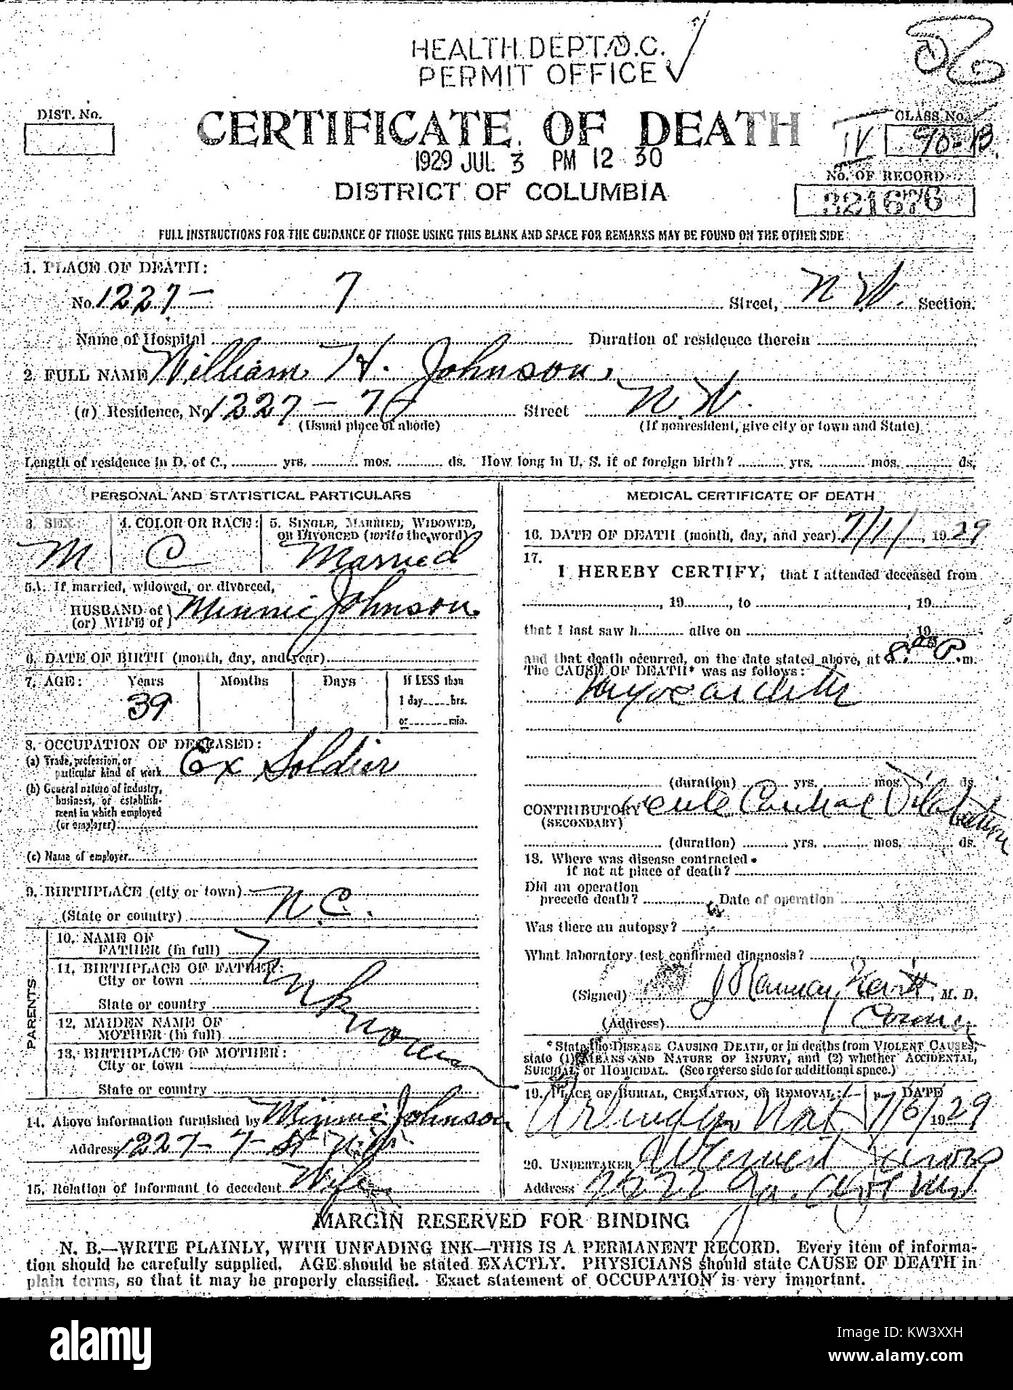 HEALTH DEPT. D.C.
PERMIT OFFICE
DIST. No.
CERTIFICATE OF DEATH
CLASS No.
IV 90-B
1929 JUL 3 PM 12 30
No. OF RECORD
DISTRICT OF COLUMBIA
321676
FULL INSTRUCTIONS FOR THE GUIDANCE OF THOSE USING THIS BLANK AND SPACE FOR REMARKS MAY BE FOUND ON THE OTHER SIDE
1. PLACE OF DEATH:
No. 1227- 7 Street, N.W. Section.
Name of Hospital Duration of residence therein
2. FULL NAME William H. Johnson.
(a) Residence, No. 1227-7 Street N.W.
(Usual place of abode) (If nonresident, give city or town and State)
Length of residence in D. of C., yrs. mos. ds. How long in U. S. if of foreign birth? yrs. mos. ds.
PERSONAL AND STATISTICAL PARTICULARS
3. SEX: 4. COLOR OR RACE: 5. SINGLE, MARRIED, WIDOWED,
OR DIVORCED (write the word)
M C Married
5A. If married, widowed, or divorced,
HUSBAND of
(or) WIFE of Minnie Johnson
6. DATE OF BIRTH (month, day, and year)
7. AGE: Years Months Days If LESS than
39 1 day hrs.
or min.
8. OCCUPATION OF DECEASED:
(a) Trade, profession, or
particular kind of work Ex Soldier
(b) General nature of industry,
business, or establish-
ment in which employed
(or employer)
(c) Name of employer
9. BIRTHPLACE (city or town)
(State or country) N.C.
PARENTS
10. NAME OF
FATHER (in full)
11. BIRTHPLACE OF FATHER:
City or town
State or country
Unknown
12. MAIDEN NAME OF
MOTHER (in full)
13. BIRTHPLACE OF MOTHER:
City or town
State or country
14. Above information furnished by Minnie Johnson
Address 1227-7-St N.W.
15. Relation of informant to decedent Wife
MEDICAL CERTIFICATE OF DEATH
16. DATE OF DEATH (month, day, and year) 7/1/, 1929
17.
I HEREBY CERTIFY, that I attended deceased from
, 19 , to , 19
that I last saw h alive on , 19
and that death occurred, on the date stated above, at 8 P.m.
The CAUSE OF DEATH* was as follows:
Myocarditis
(duration) yrs. mos. ds.
CONTRIBUTORY acute Cardiac Dilatation
(SECONDARY)
(duration) yrs. mos. ds.
18. Where was disease contracted
if not at place of death?
Did an operation
precede death? Date of operation
Was there an autopsy?
What laboratory test confirmed diagnosis?
(Signed) J Ramsay Nevitt, M. D.
(Address) Coroner
* State the DISEASE CAUSING DEATH, or in deaths from VIOLENT CAUSES,
state (1) MEANS AND NATURE OF INJURY, and (2) whether ACCIDENTAL,
SUICIDAL or HOMICIDAL. (See reverse side for additional space.)
19. PLACE OF BURIAL, CREMATION, OR REMOVAL: DATE
Arlington Nat 7/6/1929
20. UNDERTAKER
Address
MARGIN RESERVED FOR BINDING
N. B.—WRITE PLAINLY, WITH UNFADING INK—THIS IS A PERMANENT RECORD. Every item of informa-
tion should be carefully supplied. AGE should be stated EXACTLY. PHYSICIANS should state CAUSE OF DEATH in
plain terms, so that it may be properly classified. Exact statement of OCCUPATION is very important.
alamy
Image ID: KW3XXH
www.alamy.com